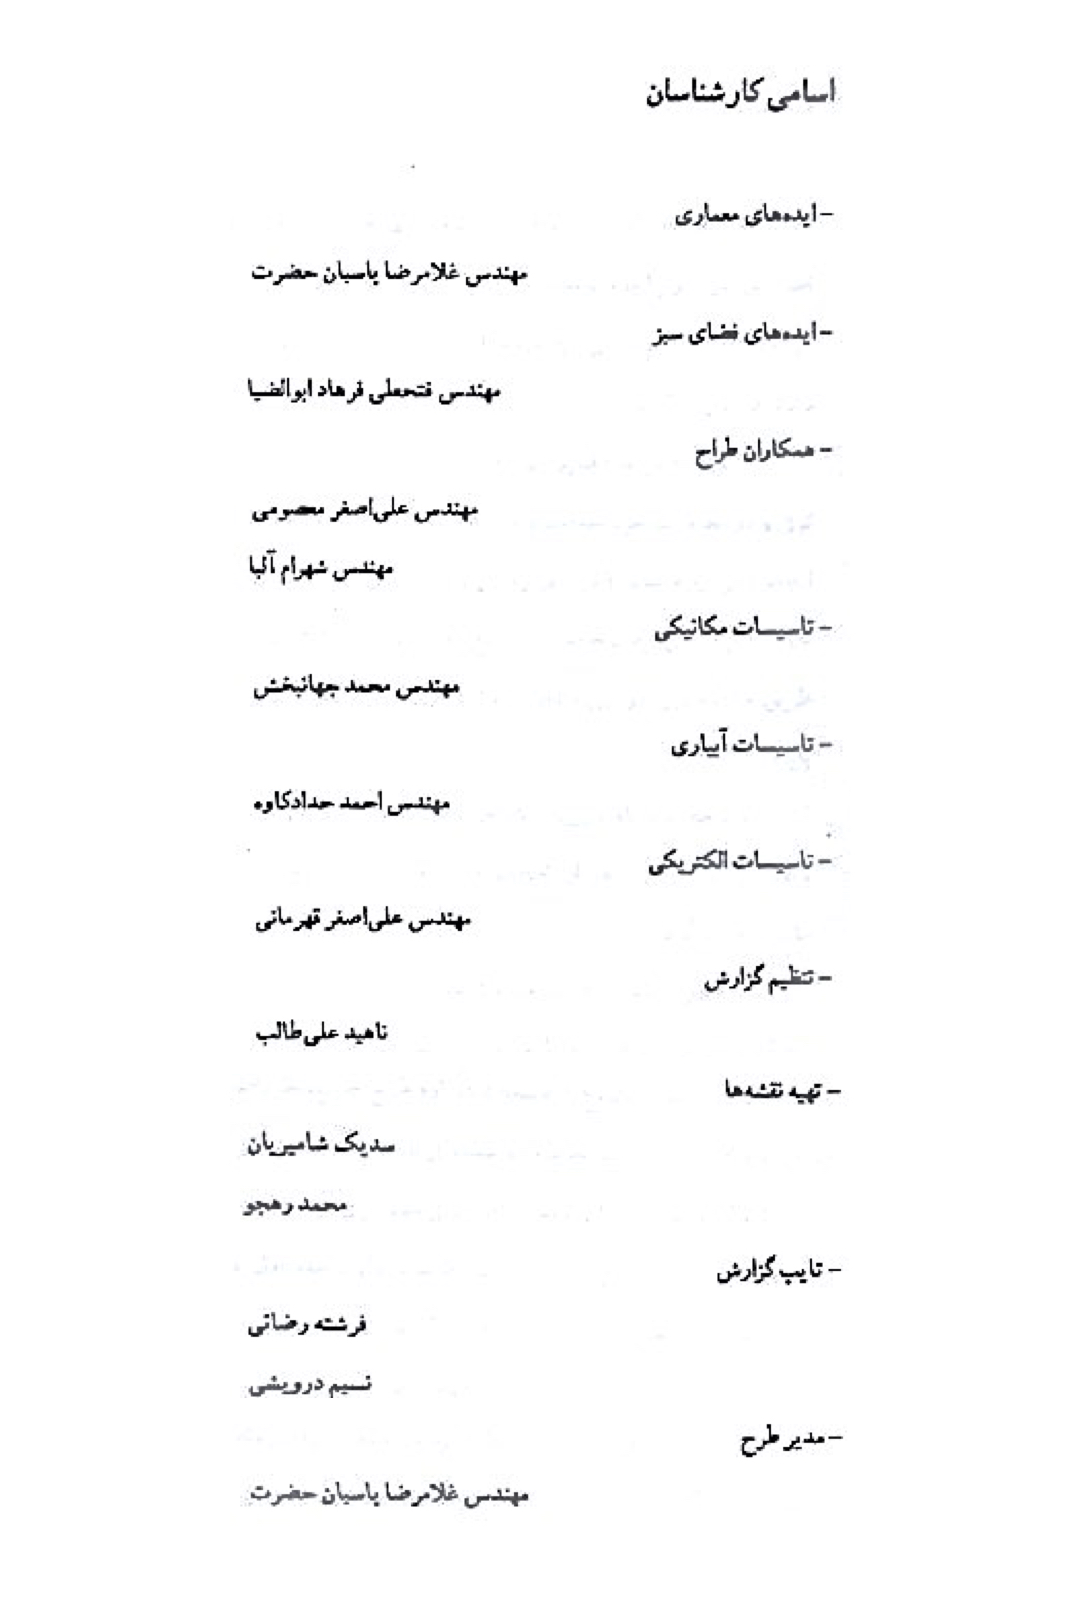 اسامی کارشناسان
- ایده‌های معماری
مهندس غلامرضا پاسبان حضرت
- ایده‌های فضای سبز
مهندس فتحعلی فرهاد ابوالضیا
- همکاران طراح
مهندس علی‌اصغر معصومی
مهندس شهرام آلبا
- تاسیسات مکانیکی
مهندس محمد جهانبخش
- تاسیسات آبیاری
مهندس احمد حدادکاوه
- تاسیسات الکتریکی
مهندس علی‌اصغر قهرمانی
- تنظیم گزارش
ناهید علی‌طالب
- تهیه نقشه‌ها
سدیک شامیریان
محمد رهجو
- تایپ گزارش
فرشته رضائی
نسیم درویشی
- مدیر طرح
مهندس غلامرضا پاسبان حضرت